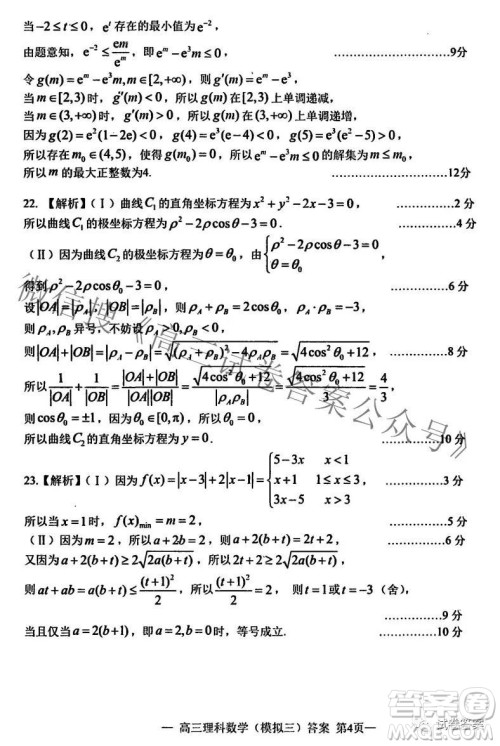 当-2≤t≤0，e^t存在的最小值为e^{-2}.
由题意知，e^{-2}≤em/e^m，即e^m-e^3m≤0，…………9分
令g(m)=e^m-e^3m,m∈[2,+∞)，则g'(m)=e^m-e^3,m∈[2,+∞)，
当m∈[2,3)时，g'(m)<0，所以g(m)在[2,3)上单调递减，
当m∈(3,+∞)时，g'(m)>0，所以g(m)在(3,+∞)上单调递增，
因为g(2)=e^2(1-2e)<0，g(4)<0，g(5)>0，
所以存在m_0∈(4,5)，使得g(m_0)=0，所以e^m-e^3m≤0的解集为m≤m_0，
所以m的最大正整数为4.…………12分
22.【解析】（Ⅰ）曲线C_1的直角坐标方程为x^2+y^2-2x-3=0，…………2分
所以曲线C_1的极坐标方程为ρ^2-2ρcosθ-3=0，…………4分
（Ⅱ）因为曲线C_2的极坐标方程为θ=θ_0，由{ρ^2-2ρcosθ-3=0 θ=θ_0，
得到ρ^2-2ρcosθ_0-3=0，…………6分
设|OA|=|ρ_A|，|OB|=|ρ_B|，所以ρ_A+ρ_B=2cosθ_0，ρ_Aρ_B=-3<0，
则ρ_A,ρ_B异号，不妨设ρ_A>0,ρ_B<0，
则|OA|+|OB|=|ρ_A-ρ_B|=√((ρ_A+ρ_B)^2-4ρ_Aρ_B)=√(4cos^2θ_0+12)，…………8分
所以1/|OA|+1/|OB|=(|OA|+|OB|)/(|OA||OB|)=√(4cos^2θ_0+12)/|ρ_Aρ_B|=√(4cos^2θ_0+12)/3=4/3，
则cosθ_0=±1，因为θ_0∈[0,π)，所以θ_0=0，
所以曲线C_2的直角坐标方程为y=0.…………10分
23.【解析】（Ⅰ）因为f(x)=|x-3|+2|x-1|={5-3x x<1 x+1 1≤x≤3 3x-5 x>3，…………3分
所以当x=1时，f(x)_min=m=2，…………5分
（Ⅱ）由题意，m=2，所以a+2b+2t=2，即a+2(b+t)=2，…………6分
又因为a+2(b+t)≥2√(2a(b+t))，所以2≥2√(2a(b+t))，
则at+ab=a(b+t)≤(t+1)^2/2，所以(t+1)^2/2=2，则t=1或t=-3（舍），
…………9分
当且仅当a=2(b+1)，即时a=2,b=0时，等号成立.…………10分
— 高三理科数学（模拟三）答案 第4页—
微信搜《高三试卷答案公众号》